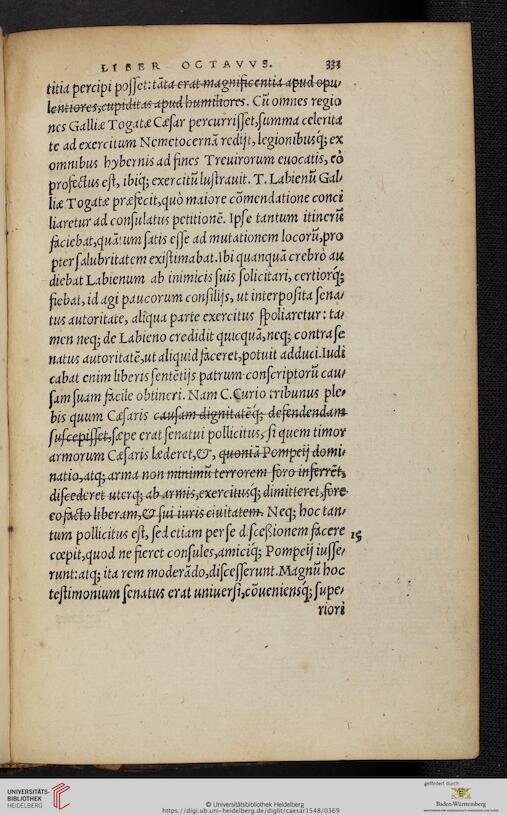 LIBER OCTAVVS. 333
titia percipi posset: tãta erat magnificentia apud opu/
lentiores, cupiditas apud humiliores. Cũ omnes regio
nes Galliæ Togatæ Cæsar percurrisset, summa celerita
te ad exercitum Nemetocernã redijt, legionibusq́; ex
omnibus hybernis ad fines Treuirorum euocatis, eò
profectus est, ibiq́; exercitũ lustrauit. T. Labienũ Gal/
liæ Togatæ præfecit, quò maiore cõmendatione conci
liaretur ad consulatus petitionẽ. Ipse tantum itinerũ
faciebat, quãtum satis esse ad mutationem locorũ, pro
pter salubritatem existimabat. Ibi quanquã crebrò au
diebat Labienum ab inimicis suis solicitari, certiorq́;
fiebat, id agi paucorum consilijs, ut interposita sena/
tus autoritate, aliqua parte exercitus spoliaretur: ta/
men neq; de Labieno credidit quicquã, neq; contra se
natus autoritatẽ, ut aliquid faceret, potuit adduci. Iudi
cabat enim liberis sentẽtijs patrum conscriptorũ cau/
sam suam facile obtineri. Nam C. Curio tribunus ple/
bis quum Cæsaris causam dignitatẽq́; defendendam
suscepisset, sæpe erat senatui pollicitus, si quem timor
armorum Cæsaris læderet, &, quoniã Pompeij domi/
natio, atq; arma non minimũ terrorem foro inferrẽt,
discederet uterq; ab armis, exercitusq́; dimitteret, fore
eo facto liberam, & sui iuris ciuitatem. Neq; hoc tan/
tum pollicitus est, sed etiam per se discessionem facere 15
cœpit, quod ne fieret consules, amiciq́; Pompeij iusse/
runt: atq; ita rem moderãdo, discesserunt. Magnũ hoc
testimonium senatus erat uniuersi, cõueniensq́; supe/
riori
UNIVERSITÄTS-
BIBLIOTHEK
HEIDELBERG
© Universitätsbibliothek Heidelberg
https://digi.ub.uni-heidelberg.de/diglit/caesar1548/0369
gefördert durch
Baden-Württemberg